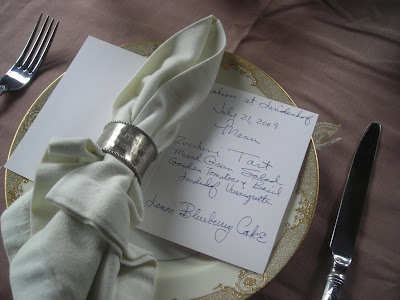 at Lindenhof
July 21, 2009
Menu
Zucchini Tart
Mixed Green Salad
Garden Tomatoes & Basil
Lindenhof Vinaigrette
Lemon Blueberry Cake